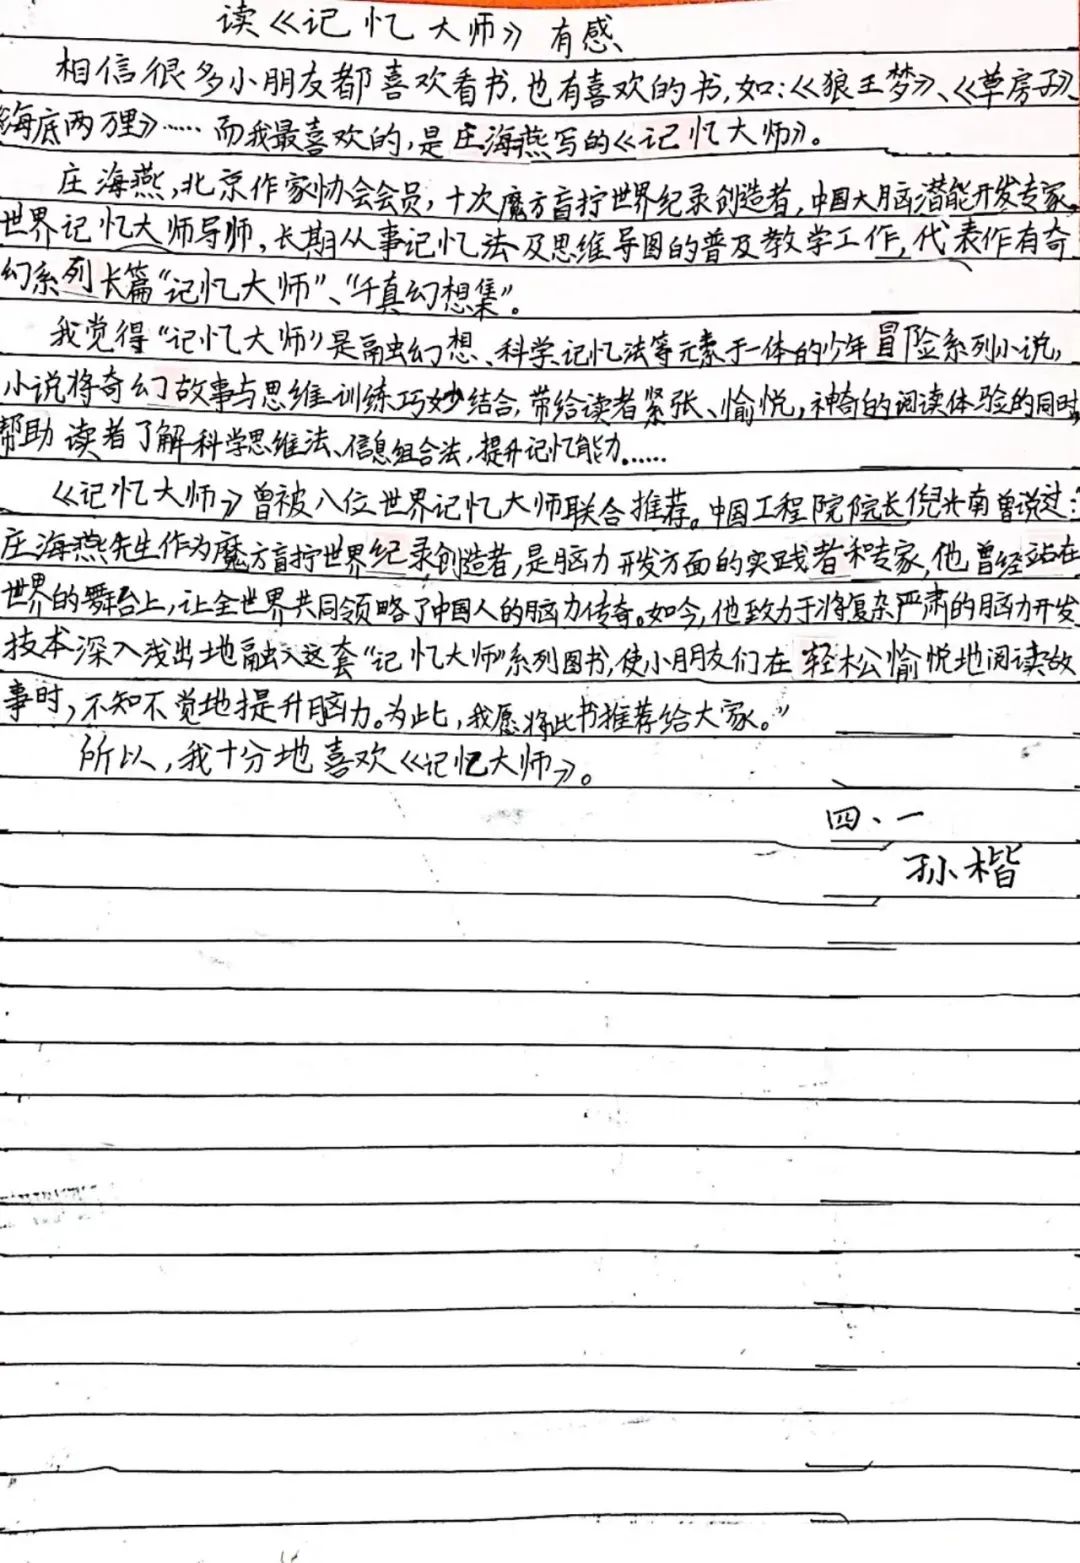 读《记忆大师》有感
相信很多小朋友都喜欢看书,也有喜欢的书,如:《狼王梦》、《草房子》、
《海底两万里》……而我最喜欢的,是庄海燕写的《记忆大师》。
庄海燕,北京作家协会会员,十次魔方盲拧世界纪录创造者,中国大脑潜能开发专家,
世界记忆大师导师,长期从事记忆法及思维导图的普及教学工作,代表作有奇
幻系列长篇“记忆大师”、“千真幻想集”。
我觉得“记忆大师”是融幻想、科学记忆法等元素于一体的少年冒险系列小说,
小说将奇幻故事与思维训练巧妙结合,带给读者紧张、愉悦,神奇的阅读体验的同时,
帮助读者了解科学思维法、信息组合法,提升记忆能力……
《记忆大师》曾被八位世界记忆大师联合推荐。中国工程院院长倪光南曾说过:
庄海燕先生作为魔方盲拧世界纪录创造者,是脑力开发方面的实践者和专家,他曾经站在
世界的舞台上,让全世界共同领略了中国人的脑力传奇。如今,他致力于将复杂严肃的脑力开发
技本深入浅出地融入这套“记忆大师”系列图书,使小朋友们在轻松愉悦地阅读故
事时,不知不觉地提升脑力。为此,我愿将此书推荐给大家。”
所以,我十分地喜欢《记忆大师》。
四、一
孙楷